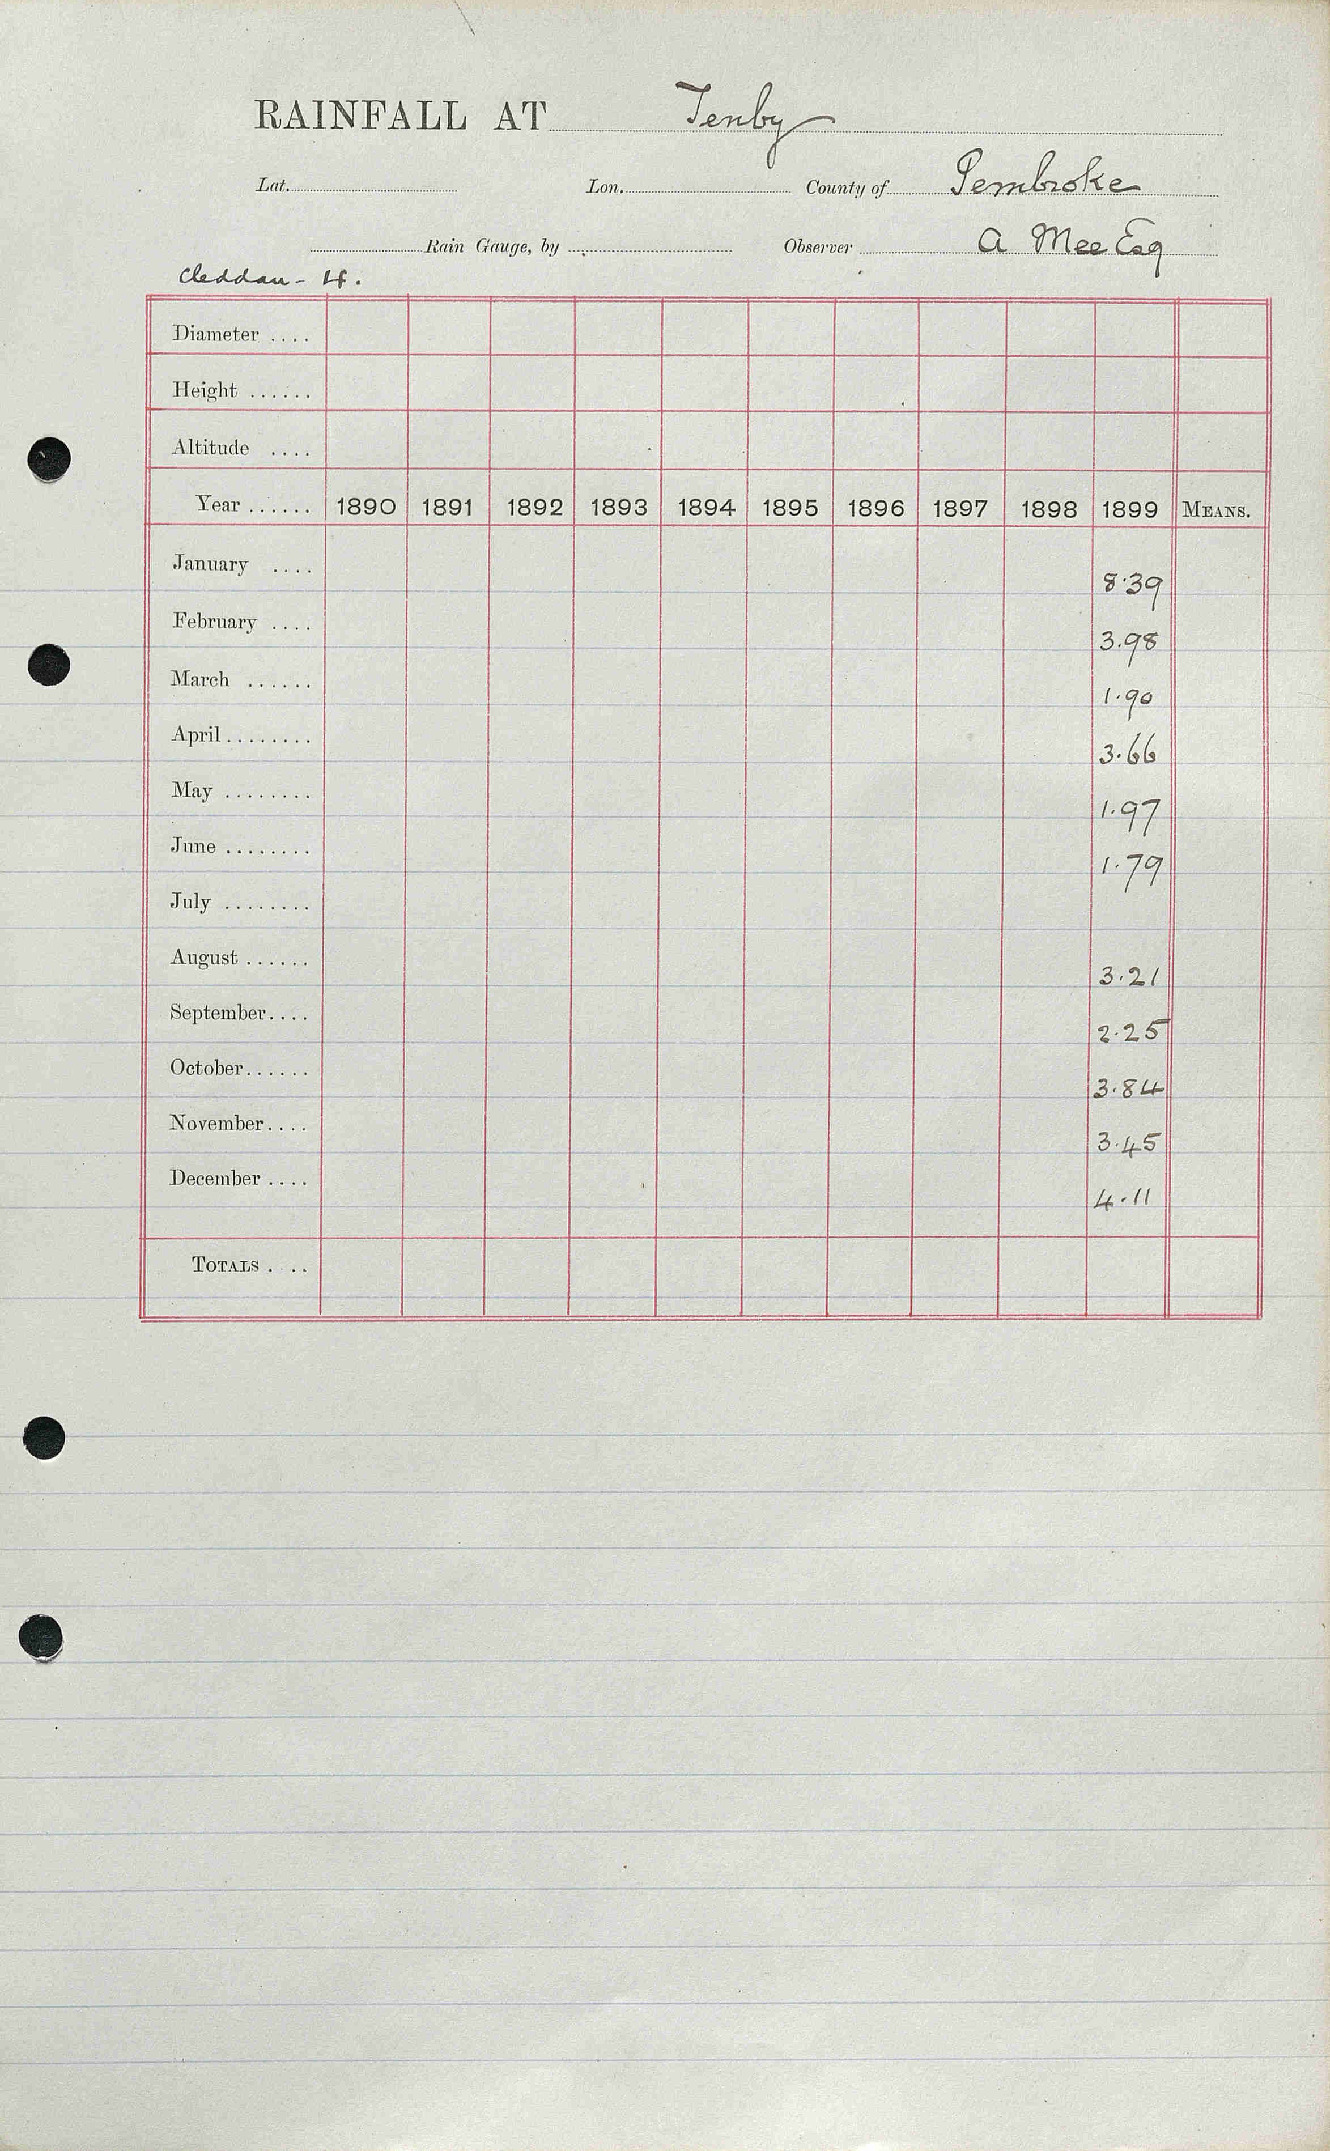 RAINFALL AT Tenby
Lat. Lon. County of Pembroke
Rain Gauge, by Observer A Mee Esq
Cleddau - 4.
Diameter ....
Height ......
Altitude ....
Year ...... 1890 1891 1892 1893 1894 1895 1896 1897 1898 1899 MEANS.
January .... 8.39
February .... 3.98
March ...... 1.90
April ........ 3.66
May ........ 1.97
June ........ 1.79
July ........
August ...... 3.21
September.... 2.25
October...... 3.84
November.... 3.45
December .... 4.11
TOTALS . ..